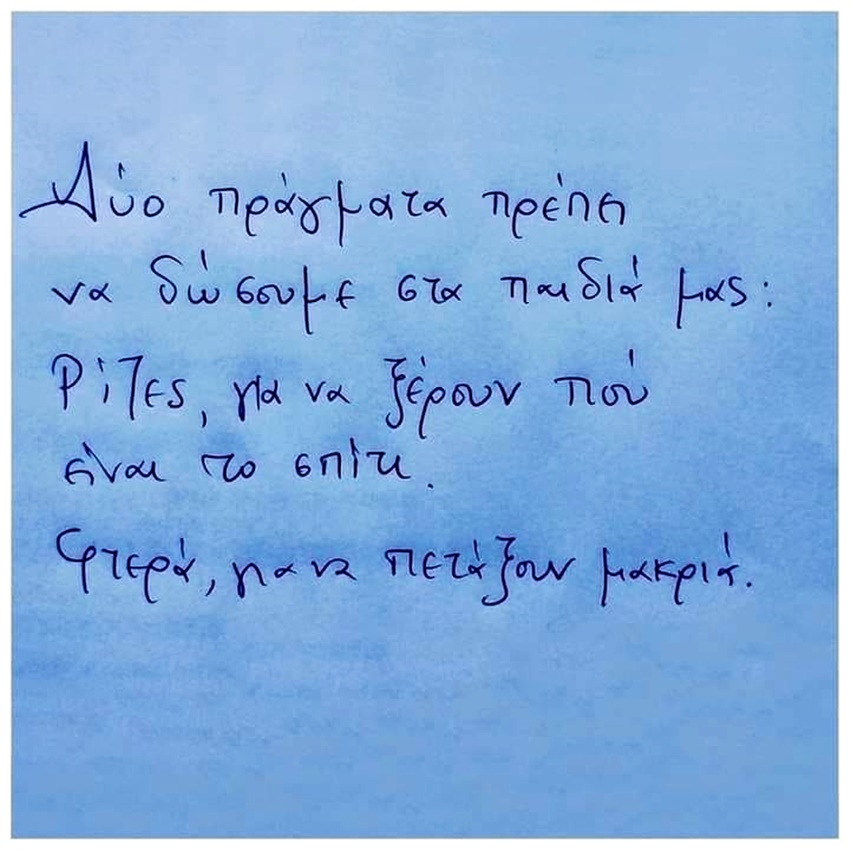 Δύο πράγματα πρέπει
να δώσουμε στα παιδιά μας:
Ρίζες, για να ξέρουν πού
είναι το σπίτι.
Φτερά, για να πετάξουν μακριά.